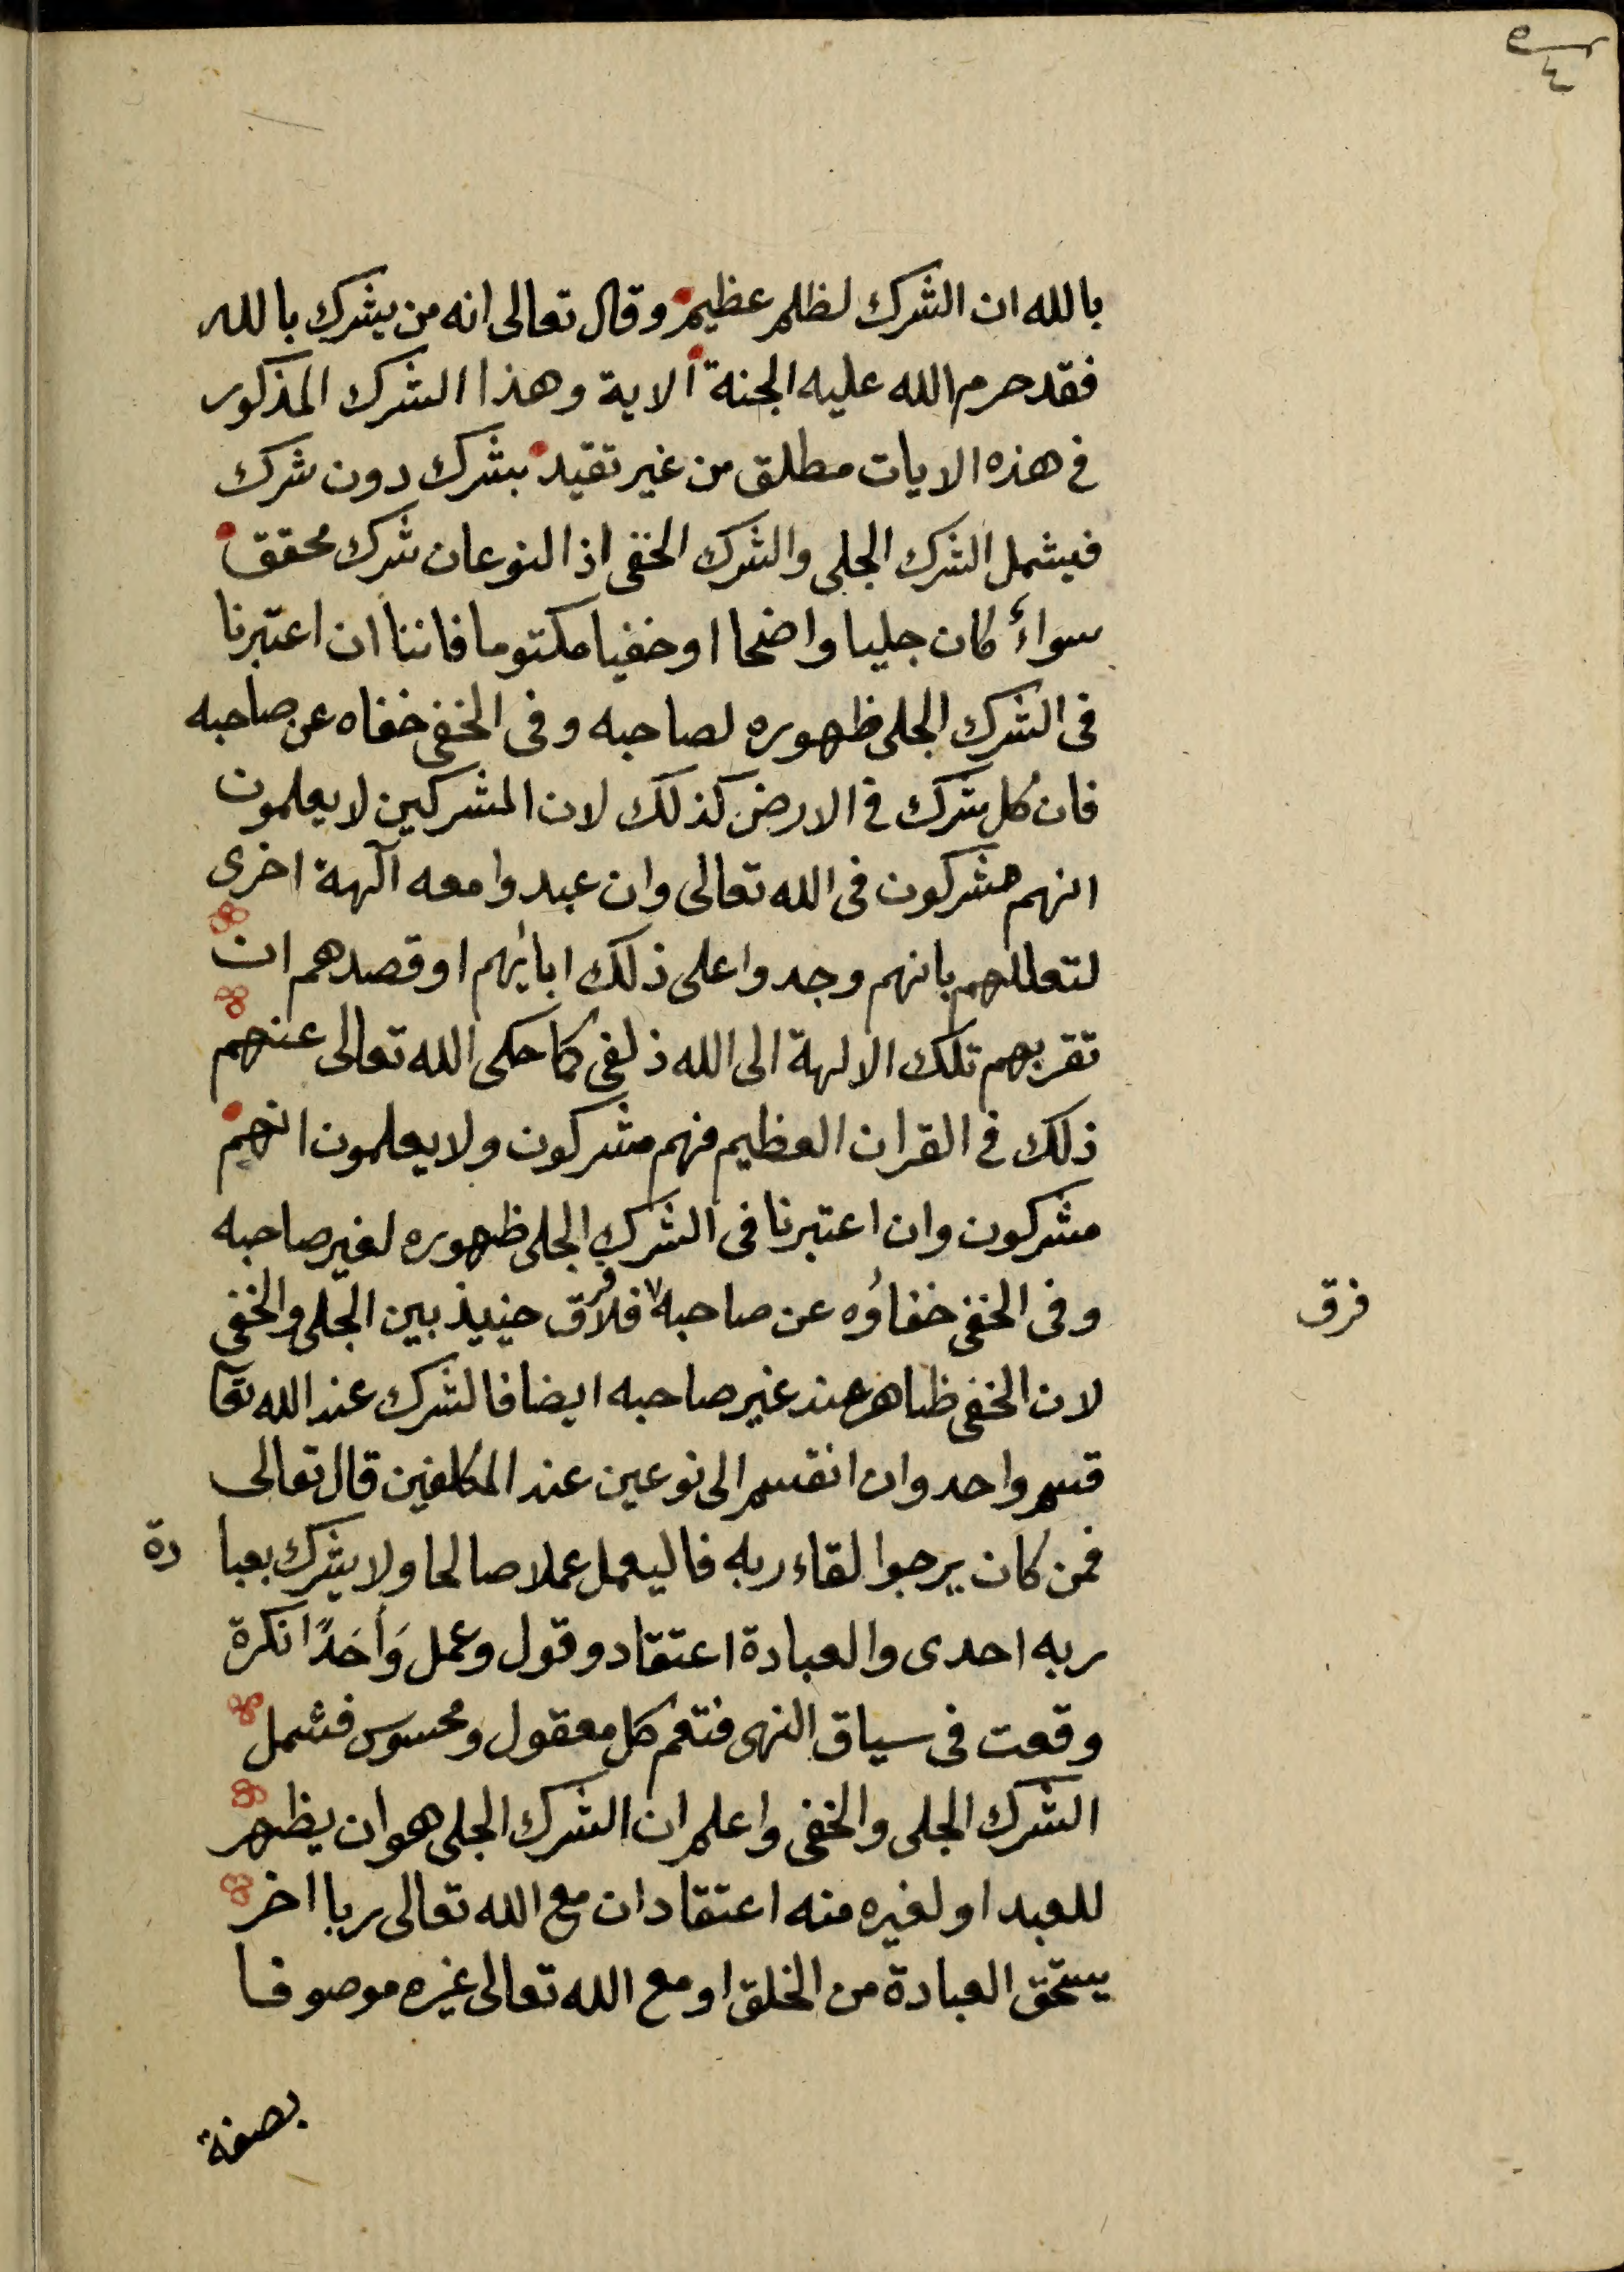 بالله ان الشرك لظلم عظيم وقال تعالى انه من يشرك بالله
فقد حرم الله عليه الجنة الاية وهذا الشرك المذكور
فى هذه الايات مطلق من غير تقيد بشرك دون شرك
فيشمل الشرك الجلى والشرك الخفى اذ النوعان شرك محقق
سواء كان جليا واضحا او خفيا مكتوما فاننا ان اعتبرنا
فى الشرك الجلى ظهوره لصاحبه وفى الخفى خفاه عن صاحبه
فان كل شرك فى الارض كذلك لان المشركين لا يعلمون
انهم مشركون فى الله تعالى وان عبدوا معه آلهة اخرى
لتعللهم بانهم وجدوا على ذلك ابائهم او قصدهم ان
تقربهم تلك الالهة الى الله ذلفى كما حكى الله تعالى عنهم
ذلك فى القران العظيم فهم مشركون ولا يعلمون انهم
مشركون وان اعتبرنا فى الشرك الجلى ظهوره لغير صاحبه
وفى الخفى خفاؤه عن صاحبه فلا فرق حينيذ بين الجلى والخفى
فرق
لان الخفى ظاهر عند غير صاحبه ايضا فالشرك عند الله تعا
قسم واحد وان انقسم الى نوعين عند المكلفين قال تعالى
فمن كان يرجوا لقاء ربه فاليعمل عملا صالحا ولا يشرك بعبا دة
ربه احدى والعبادة اعتقاد وقول وعمل وَأَحَدًا نكرة
وقعت فى سياق النهى فتعم كل معقول ومحسوس فشمل
الشرك الجلى والخفى واعلم ان الشرك الجلى هو ان يظهر
للعبد او لغيره منه اعتقاد ان مع الله تعالى ربا اخر
يستحق العبادة من الخلق او مع الله تعالى غيره موصوفا
بصفة